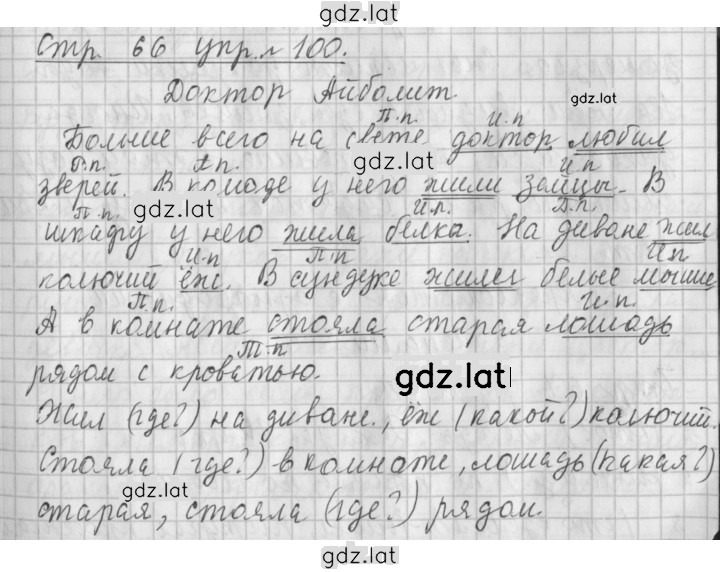 gdz.lat
Стр. 66 упр. № 100.
Доктор Айболит.
gdz.lat
П.п. И.п
Больше всего на свете доктор любил
gdz.lat
П.п. И.п
зверей. В комоде у него жили зайцы. В
gdz.lat
П.п. И.п.
шкафу у него жила белка. На диване жил
И.п П.п И.п
колючий ёж. В сундуке жили белые мыши
П.п. И.п.
А в комнате стояла старая лошадь
Т.п
рядом с кроватью.
gdz.lat
Жил (где?) на диване., ёж (какой?) колючий.
Стояла (где?) в комнате, лошадь (какая?)
gdz.lat
старая, стояла (где?) рядом.
gdz.lat